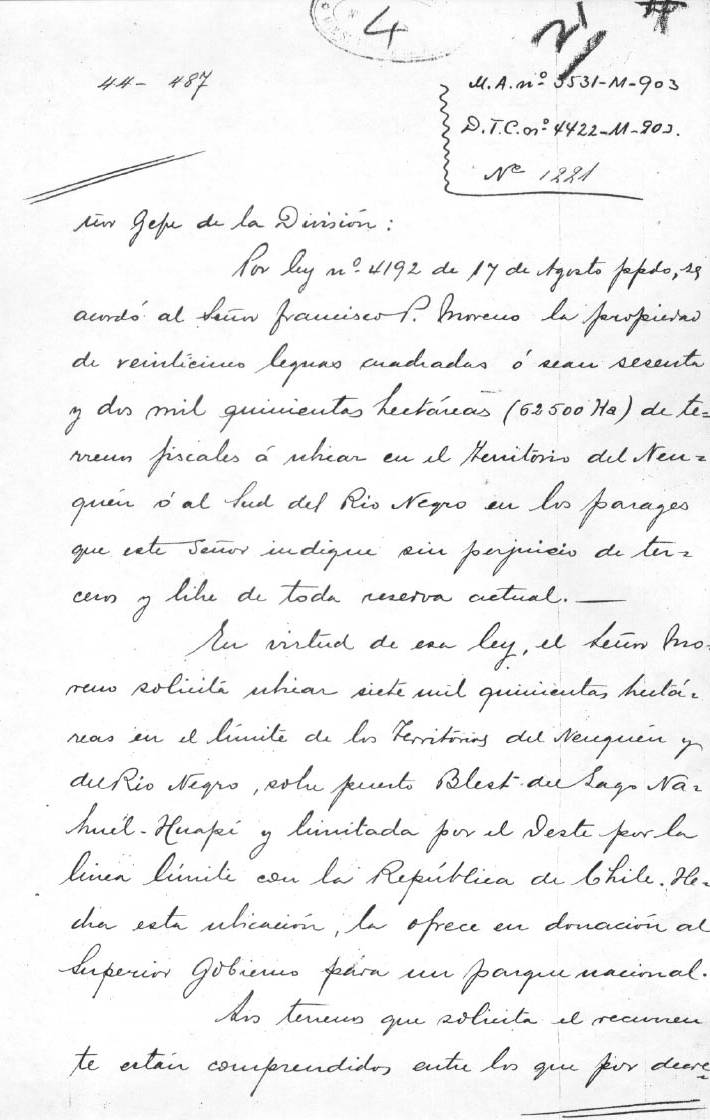 4
21
44- 487
M.A. nº 3531-M-903
D.T.C. nº 4422-M-903.
Nº 1221
ñor Gefe de la División:
Por ley nº 4192 de 17 de Agosto ppdo, se
acordó al Señor Francisco P. Moreno la propiedad
de veinticinco leguas cuadradas ó sean sesenta
y dos mil quinientas hectáreas (62500 Ha) de te=
rrenos fiscales á ubicar en el Territorio del Neu=
quén ó al Sud del Rio Negro en los parages
que este Señor indique sin perjuicio de ter=
ceros y libre de toda reserva actual. —
En virtud de esa ley, el Señor Mo-
reno solicita ubicar siete mil quinientas hectá-
reas en el límite de los Territorios del Neuquén y
del Rio Negro, sobre puerto Blest del Lago Na=
huél-Huapí y limitada por el Oeste por la
linea límite con la República de Chile. He=
cha esta ubicación, la ofrece en donación al
Superior Gobierno para un parque nacional.
Los terrenos que solicita el recurren
te están comprendidos entre los que por decre=